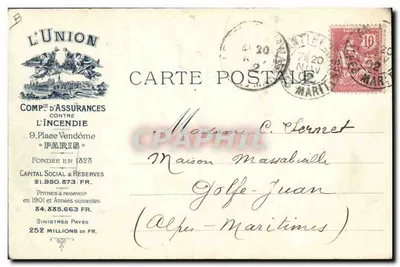 L'UNION
COMPIE D'ASSURANCES
CONTRE
L'INCENDIE
9, Place Vendôme
PARIS
FONDÉE EN 1828
CAPITAL SOCIAL & RÉSERVES
21.950.873 FR.
PRIMES À RECEVOIR
EN 1901 ET ANNÉES SUIVANTES
84.885.663 FR.
SINISTRES PAYÉS
252 MILLIONS DE FR.
CARTE POSTALE
10
20
MARIT
Madame C.
Maison Massabielle
Golfe-Juan
(Alpes-Maritimes)